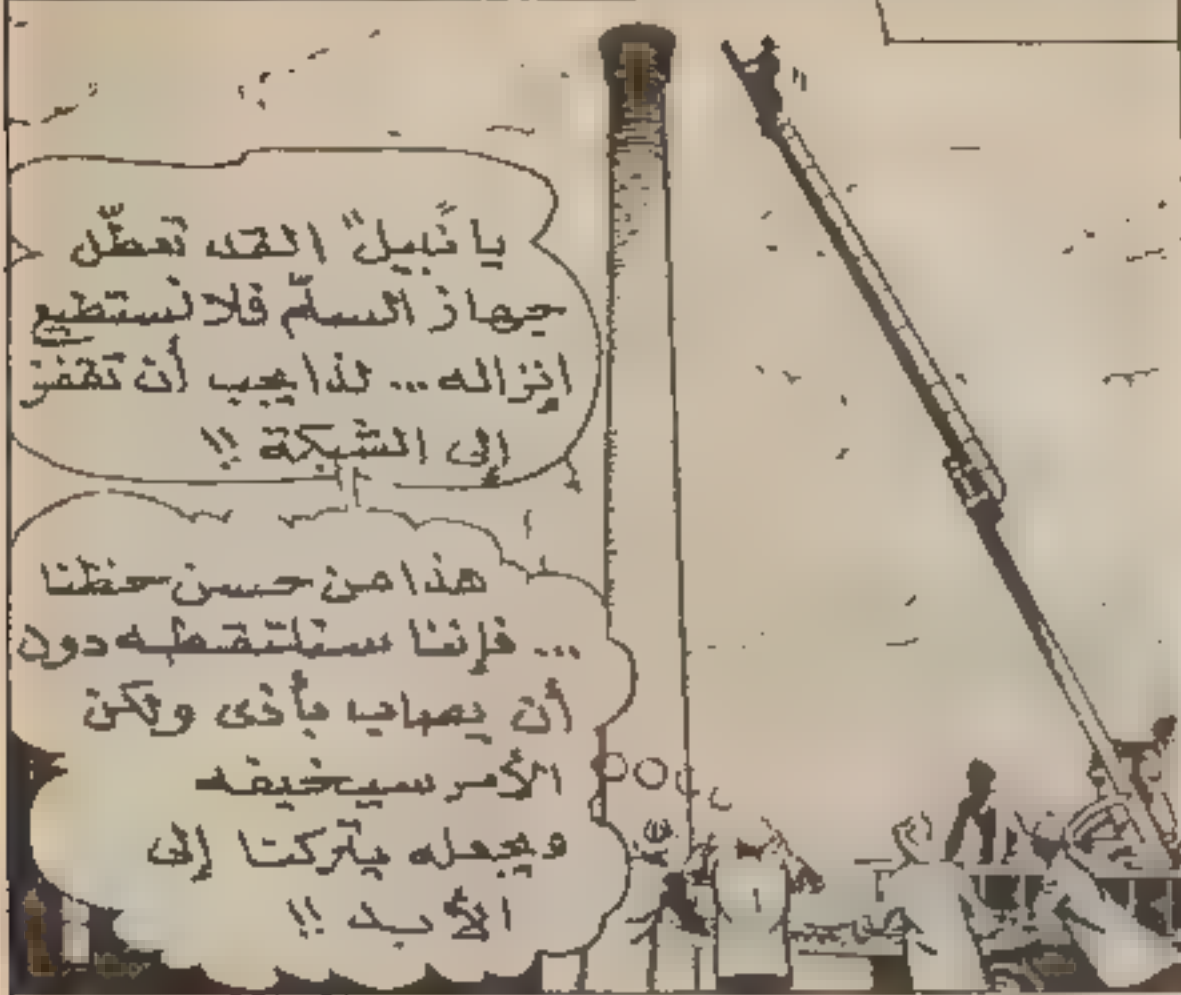 يا "نبيل" القد تعطّل
جهاز السلّم فلا نستطيع
إنزاله... لذا يجب أن تقفز
إلى الشبكة !!
هذا من حسن حظنا
... فإننا سنلتقطه دون
أن يصاب بأذى ولكن
الأمر سيخيفه
ويجعله يتركنا إلى
الأبد !!